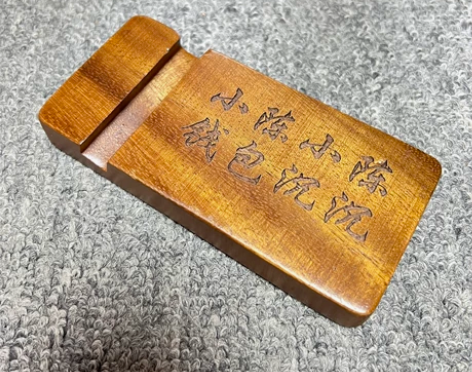 小陈小陈
钱包沉沉